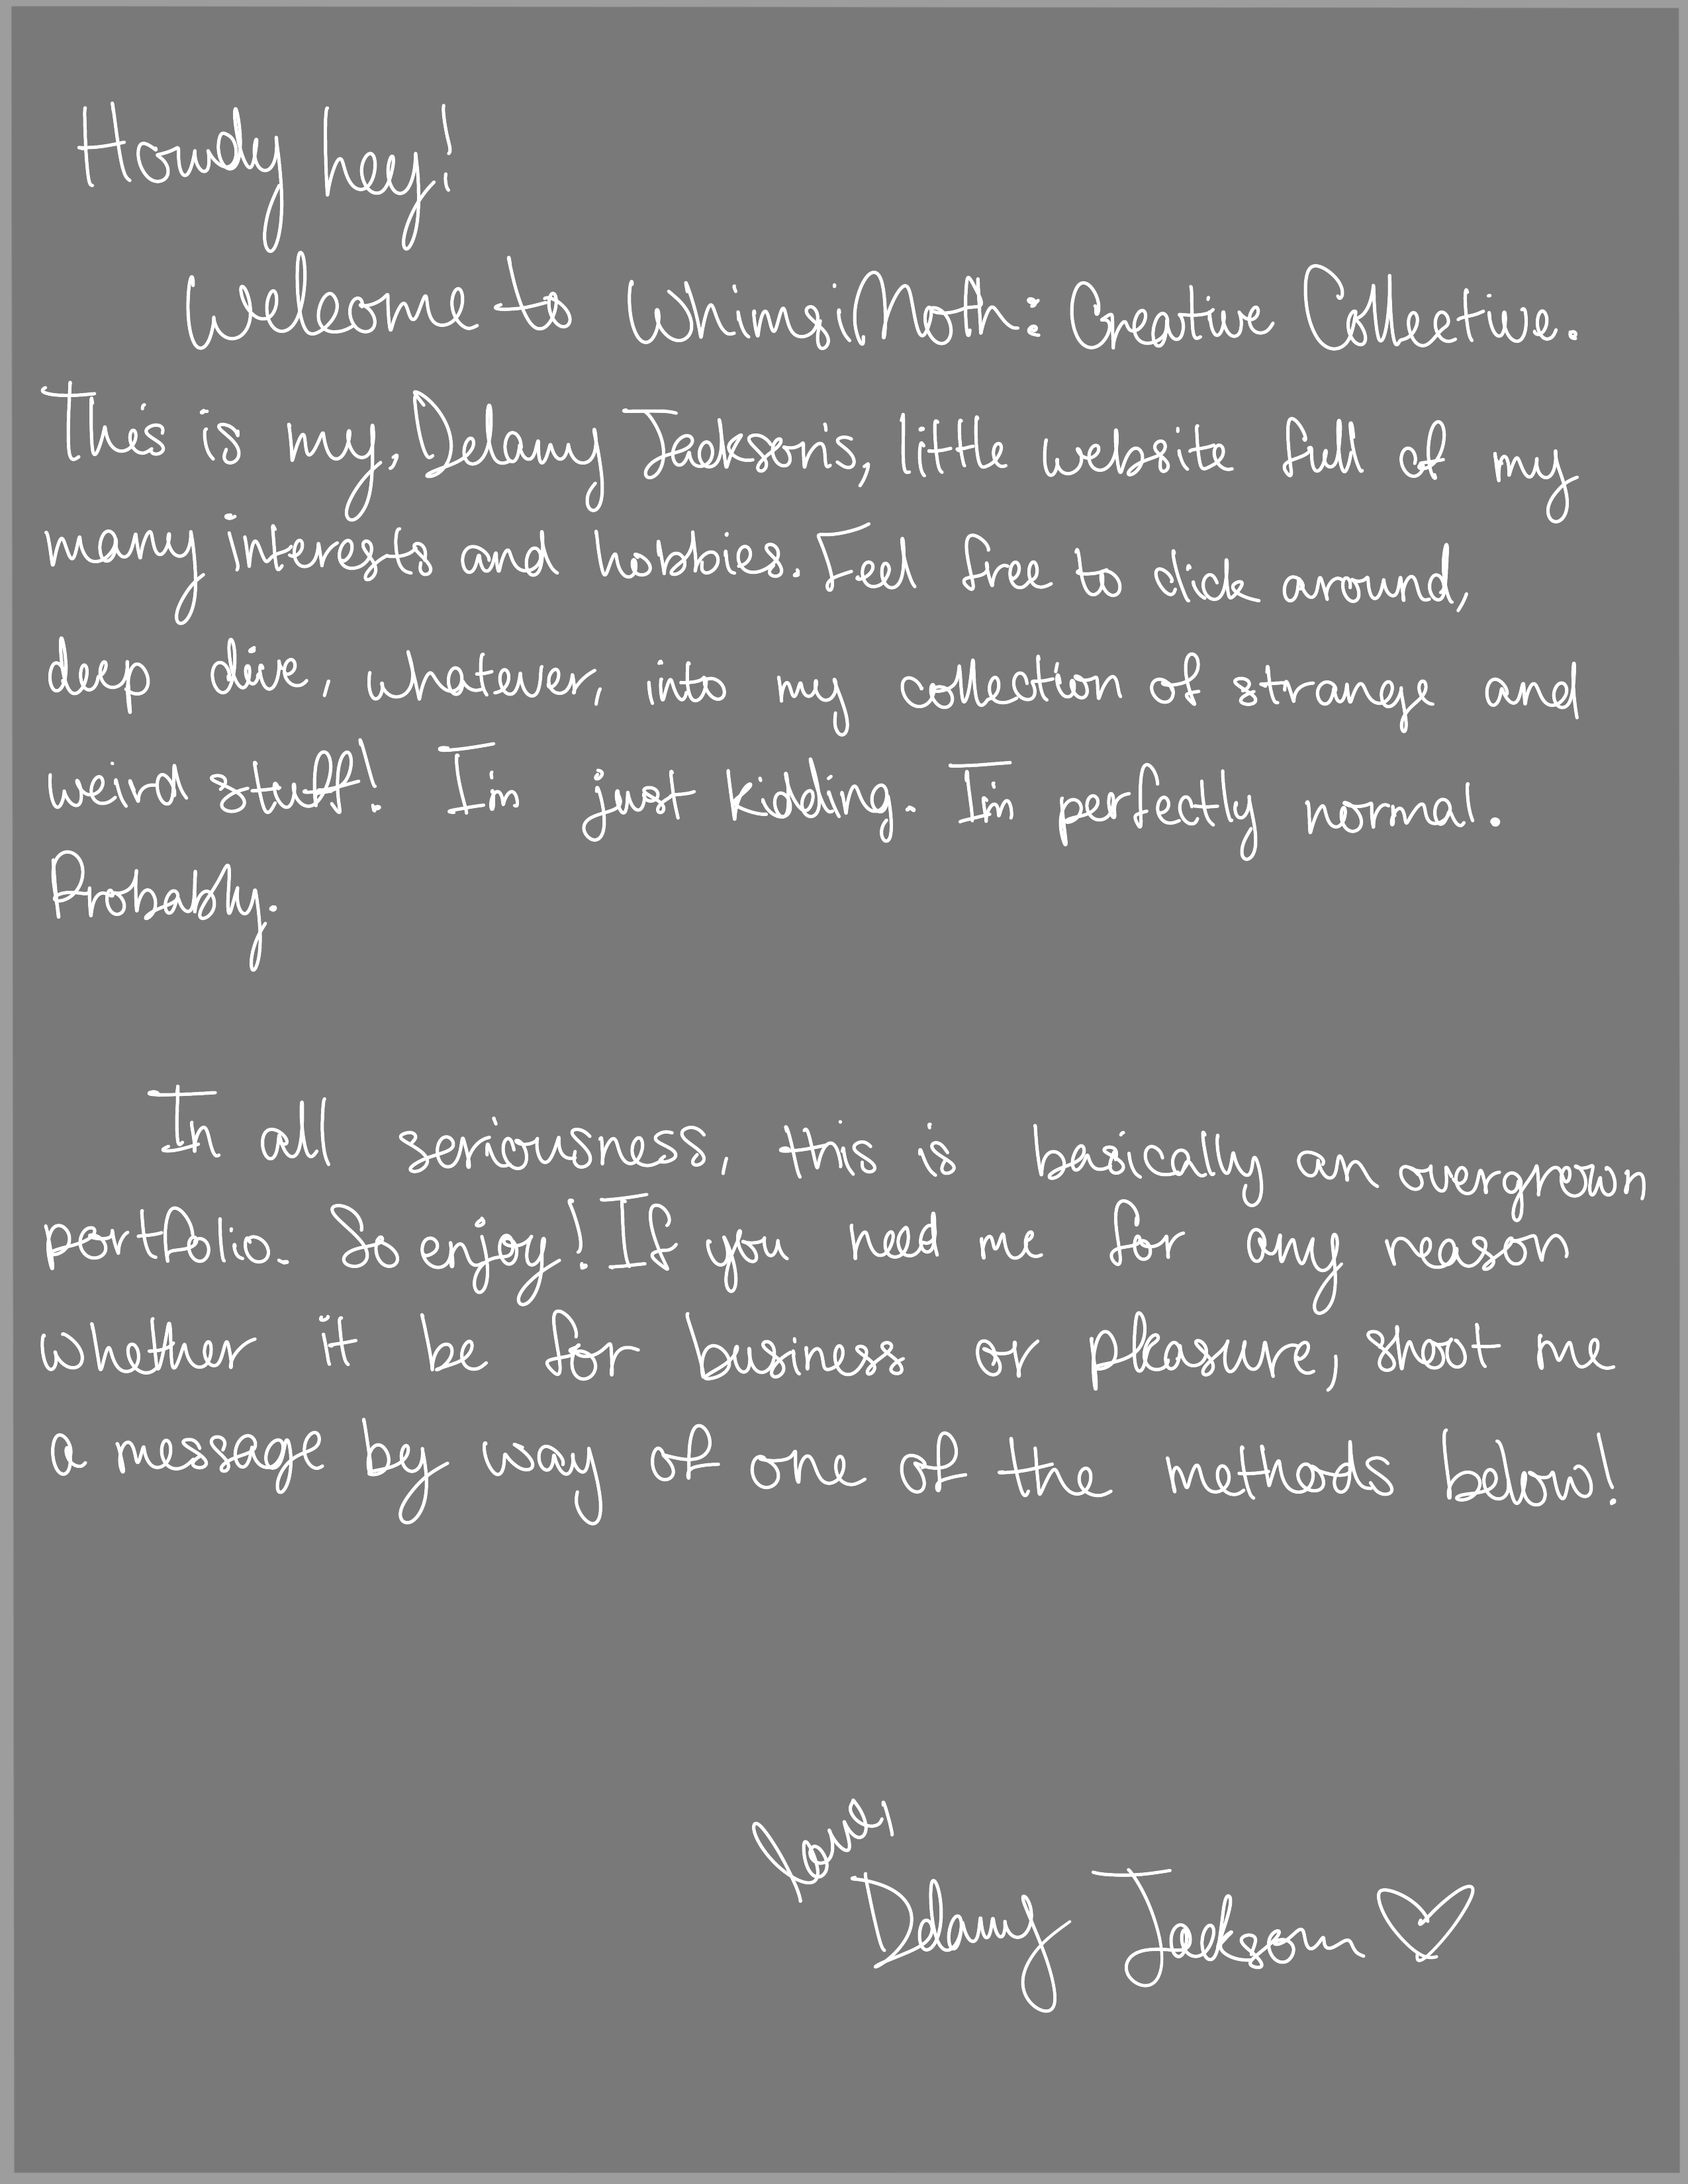 Howdy hey!
Welcome to WhimsiMoth: Creative Collective.
This is my, Delany Jackson's, little website full of my
many interests and hobbies. Feel free to click around,
deep dive, whatever, into my collection of strange and
weird stuff! I'm just kidding. I'm perfectly normal.
Probably.
In all seriousness, this is basically an overgrown
portfolio. So enjoy! If you need me for any reason
whether it be for business or pleasure, shoot me
a message by way of one of the methods below!
Love,
Delany Jackson